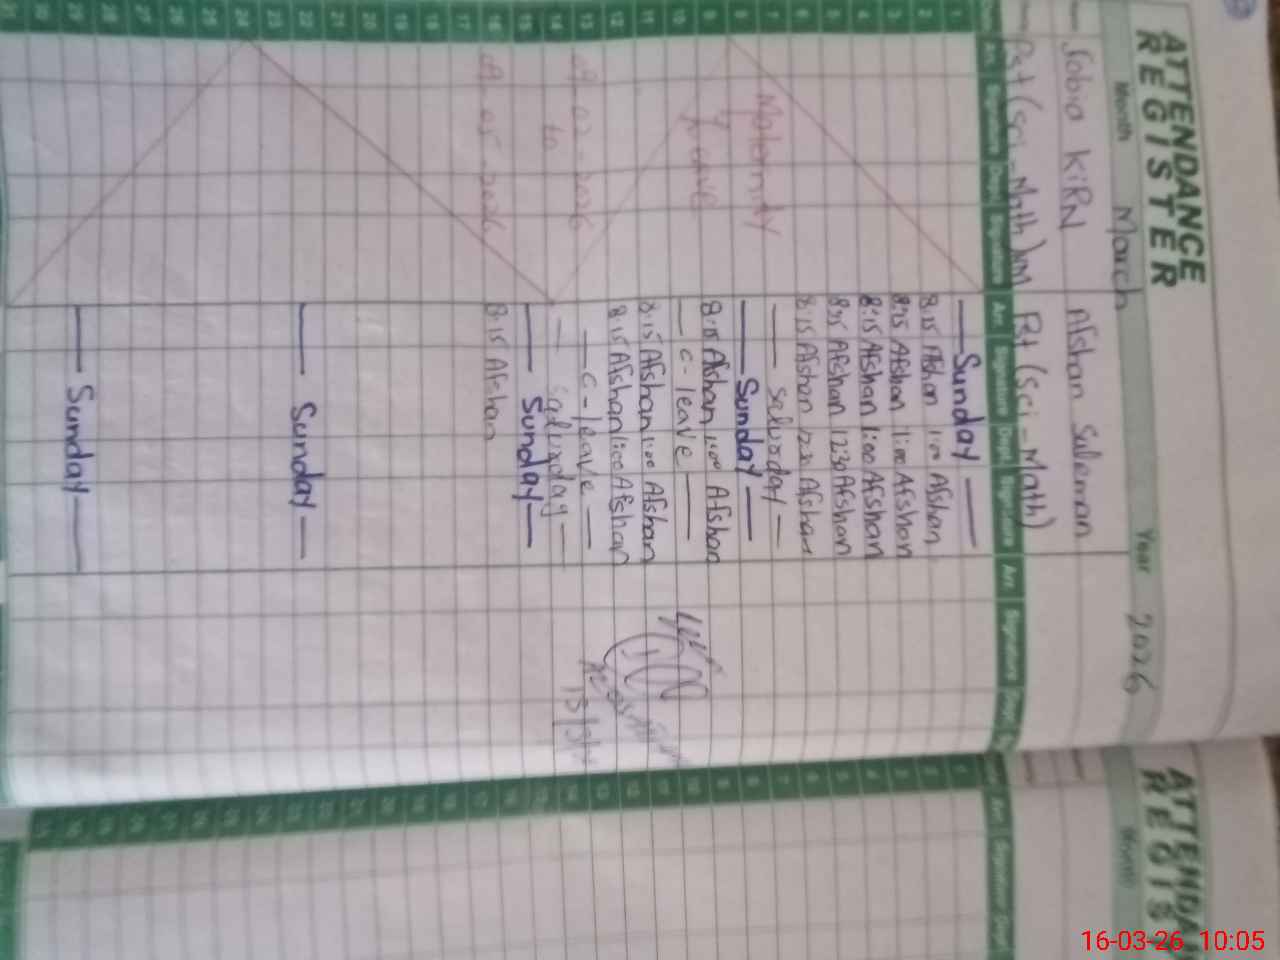 ATTENDANCE
REGISTER
Month March Year 2026
Sobia KiRN Afshan Suleman
Pst (Sci-Math) Pst (Sci-Math)
Arr. Signature Dept. Signature Arr. Signature Dept. Signature Arr. Signature Dept.
1 Sunday
2 8:15 Afshan 1:00 Afshan
3 8:15 Afshan 1:00 Afshan
4 8:15 Afshan 1:00 Afshan
5 8:15 Afshan 12:30 Afshan
6 8:15 Afshan 12:30 Afshan
7 Maternity Saturday
8 Sunday
9 Leave 8:15 Afshan 1:00 Afshan
10 C-leave
11 8:15 Afshan 1:00 Afshan
12 8:15 Afshan 1:00 Afshan
13 09-02-2026 C-leave
14 to Saturday
15 Sunday
16 09-05-2026 8:15 Afshan
17
18
19
20
21
22 Sunday
23
24
25
26
27
28
29 Sunday
30
31
ATTENDA
REGIS
Month
16-03-26 10:05